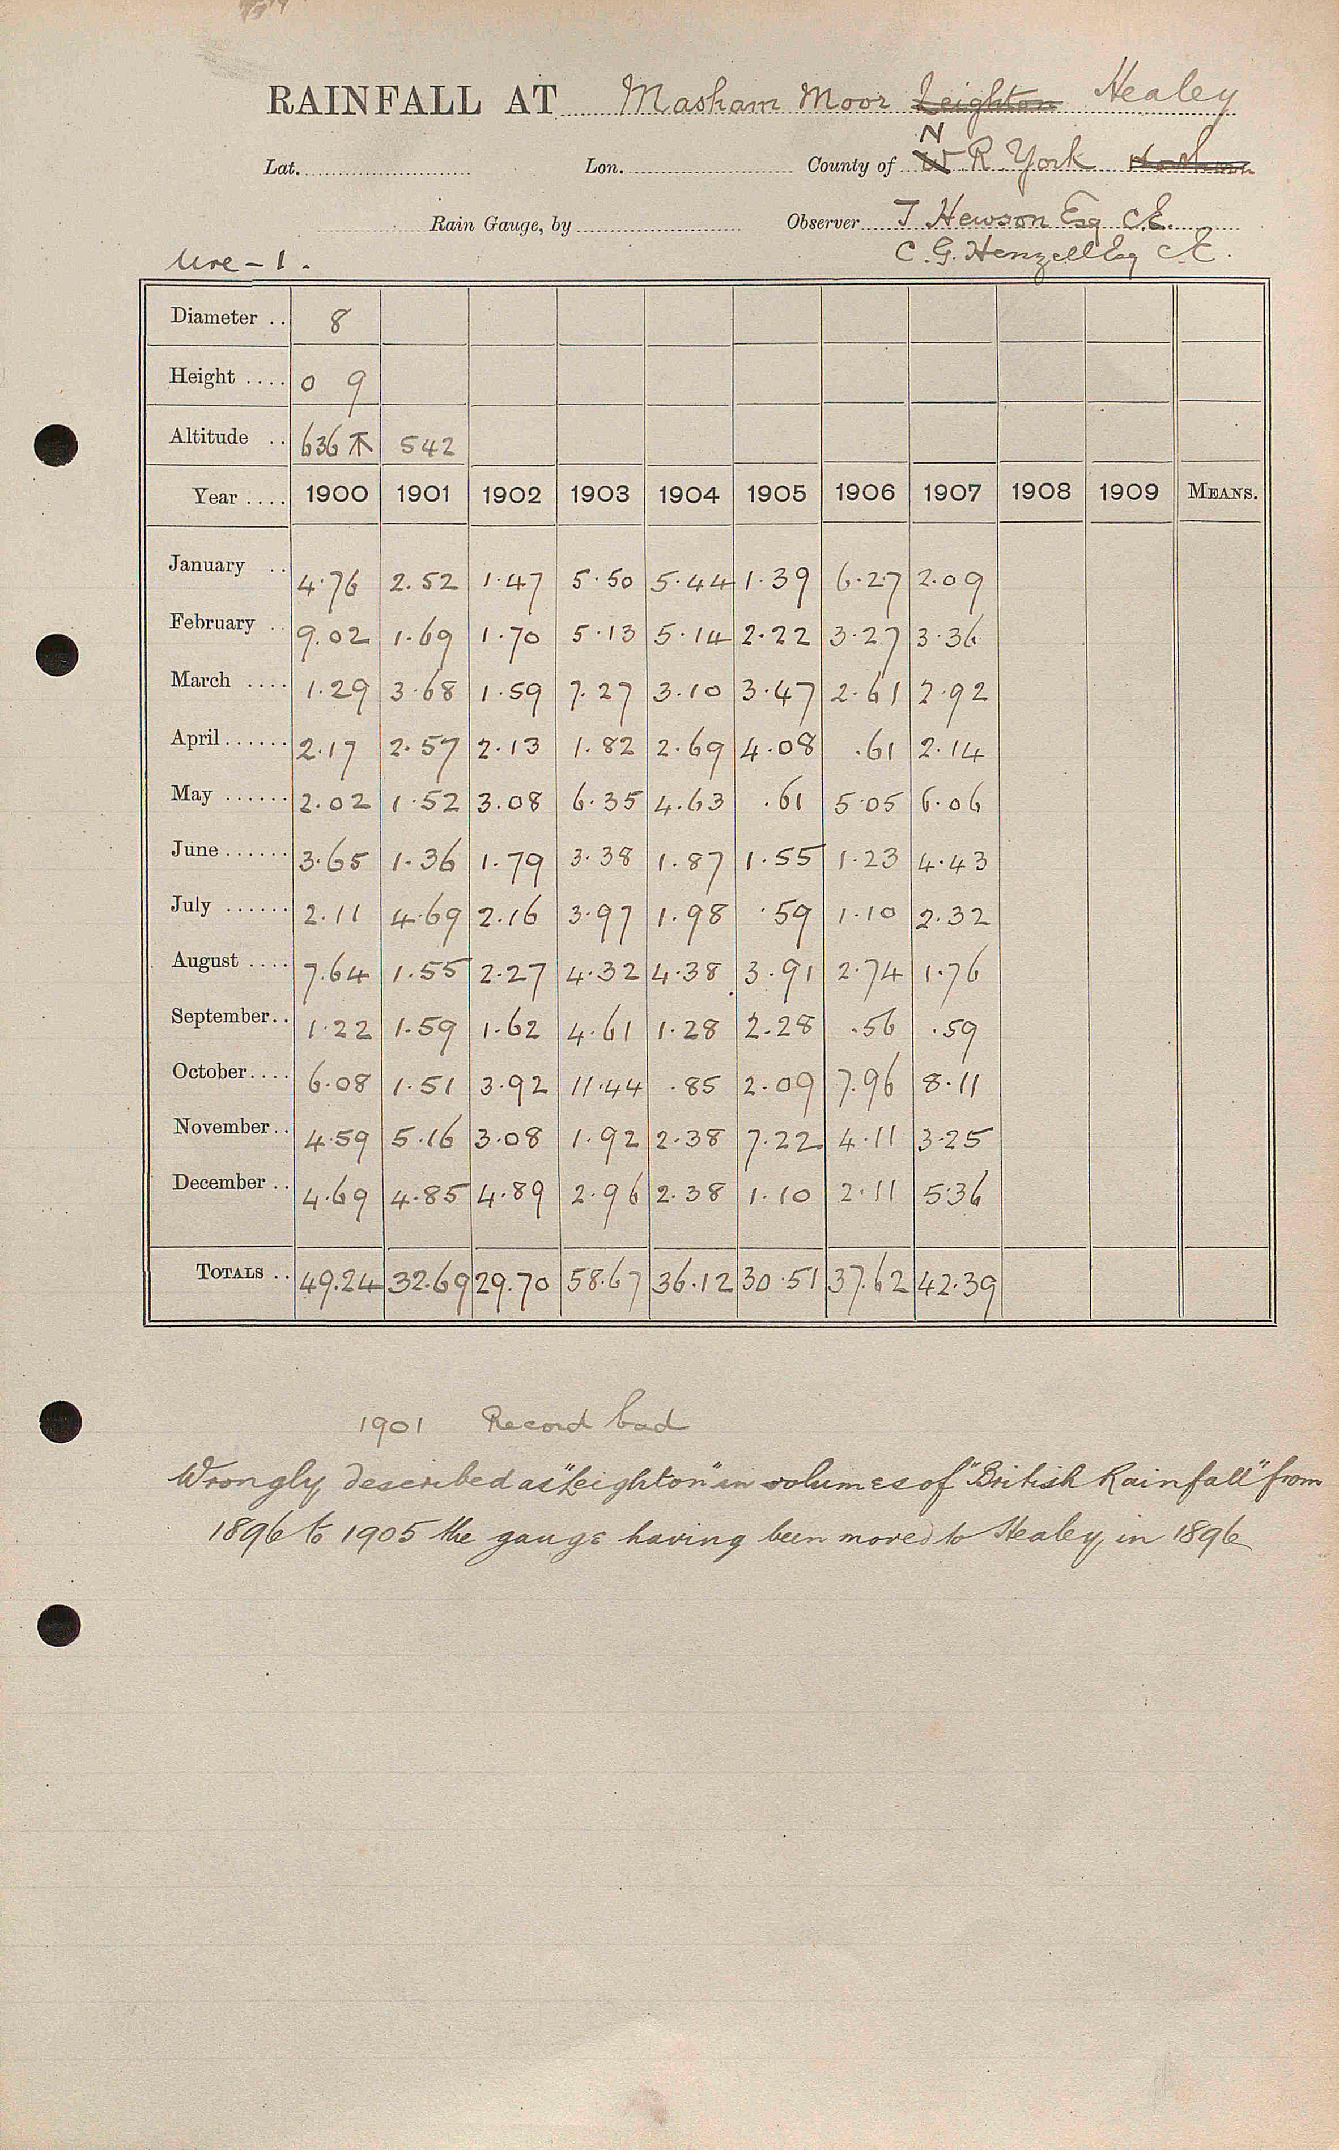 RAINFALL AT Masham Moor Leighton Healey
Lat. Lon. County of W N R. York
Rain Gauge, by Observer T Hewson Esq C.E.
Ure - 1. C. G. Henzell Esq C.E.
Diameter .. 8
Height .... 0 9
Altitude .. 636 542
Year .... 1900 1901 1902 1903 1904 1905 1906 1907 1908 1909 MEANS.
January .. 4.76 2.52 1.47 5.50 5.44 1.39 6.27 2.09
February .. 9.02 1.69 1.70 5.13 5.14 2.22 3.27 3.36
March .... 1.29 3.68 1.59 7.27 3.10 3.47 2.61 2.92
April ...... 2.17 2.57 2.13 1.82 2.69 4.08 .61 2.14
May ...... 2.02 1.52 3.08 6.35 4.63 .61 5.05 6.06
June ...... 3.65 1.36 1.79 3.38 1.87 1.55 1.23 4.43
July ...... 2.11 4.69 2.16 3.97 1.98 .59 1.10 2.32
August .... 7.64 1.55 2.27 4.32 4.38 3.91 2.74 1.76
September .. 1.22 1.59 1.62 4.61 1.28 2.28 .56 .59
October .... 6.08 1.51 3.92 11.44 .85 2.09 7.96 8.11
November .. 4.59 5.16 3.08 1.92 2.38 7.22 4.11 3.25
December .. 4.69 4.85 4.89 2.96 2.38 1.10 2.11 5.36
TOTALS .. 49.24 32.69 29.70 58.67 36.12 30.51 37.62 42.39
1901 Record bad
Wrongly described as "Leighton" in volumes of "British Rainfall" from
1896 to 1905 the gauge having been moved to Healey in 1896